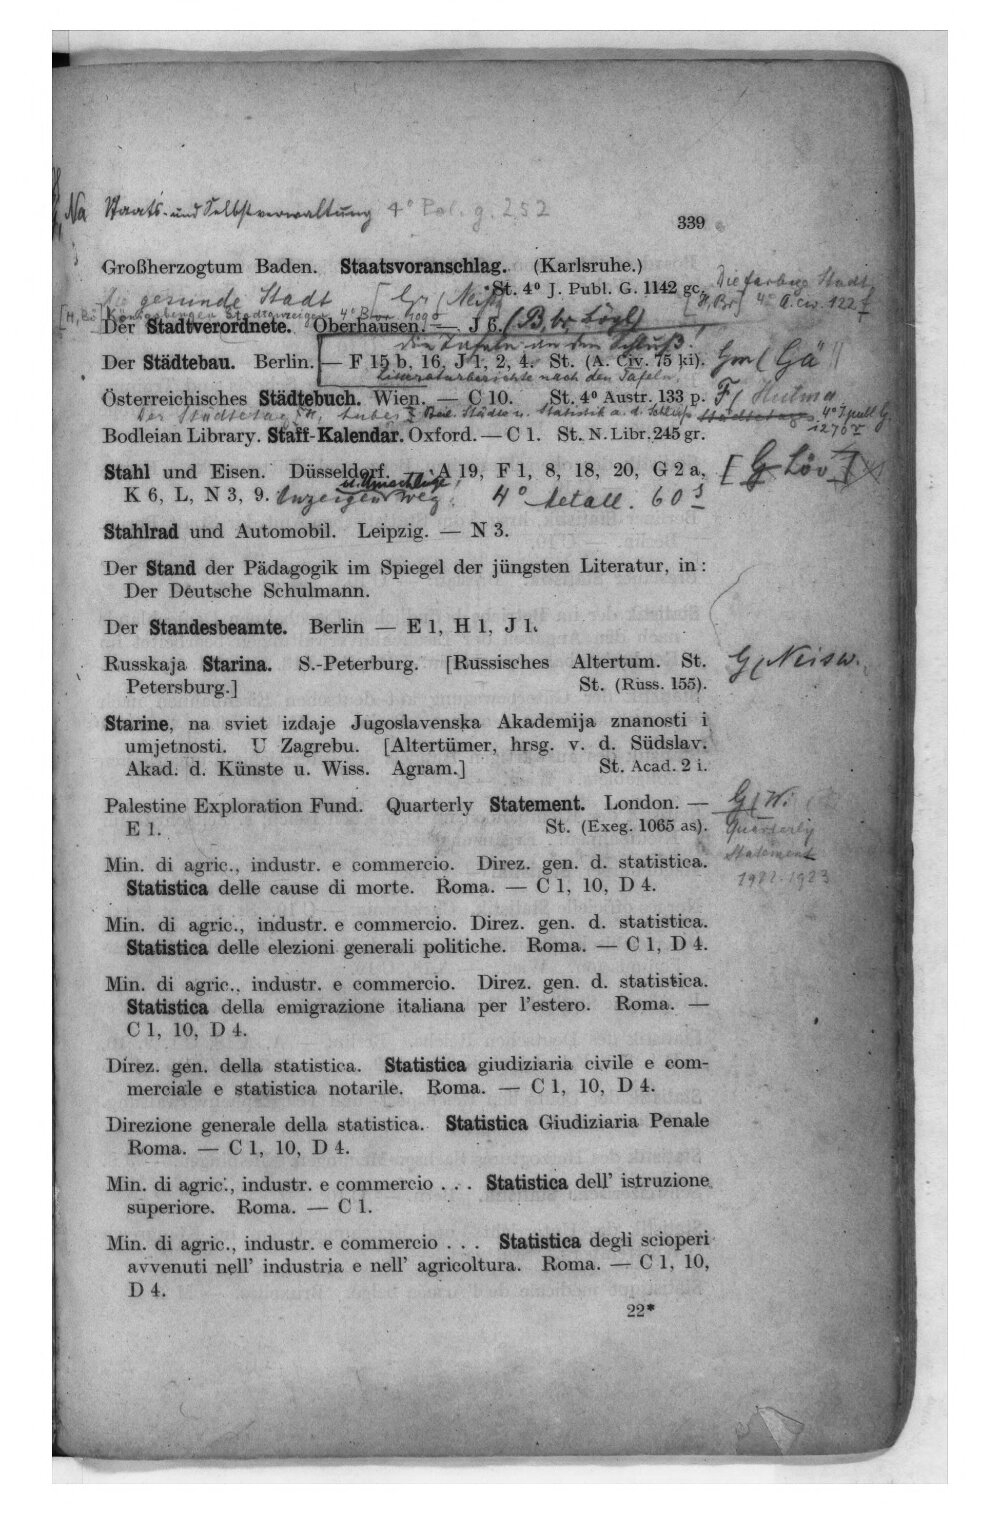 Na Staats- und Selbstverwaltung 4° Pol. g. 252
339
Großherzogtum Baden. Staatsvoranschlag. (Karlsruhe.)
St. 4° J. Publ. G. 1142 gc.
Die farbige Stadt
[H, Br] 4° A. civ. 122 f
Die gesunde Stadt [Gr / Neiss
[H, Br] Königsberger Stadtanzeiger 4° Bor. 4090
Der Stadtverordnete. Oberhausen. — J 6. (B, br Lözl)
die Tafeln an den Schluß!
Der Städtebau. Berlin. — F 15 b, 16, J 1, 2, 4. St. (A. Civ. 75 ki). Gm ( Gä
Literaturberichte nach den Tafeln.
Österreichisches Städtebuch. Wien. — C 10. St. 4° Austr. 133 p. F/
Der Städtetag Beil. Städte u. Statistik a. d. Schluß Städtetag 4° J. publ. G.
1270 I
Bodleian Library. Staff-Kalendar. Oxford. — C 1. St. N. Libr. 245 gr.
Stahl und Eisen. Düsseldorf. — A 19, F 1, 8, 18, 20, G 2 a, [G Löv]
u. Umschläge
K 6, L, N 3, 9. Anzeigen weg! 4° Metall. 60 s
Stahlrad und Automobil. Leipzig. — N 3.
Der Stand der Pädagogik im Spiegel der jüngsten Literatur, in:
Der Deutsche Schulmann.
Der Standesbeamte. Berlin — E 1, H 1, J 1.
Russkaja Starina. S.-Peterburg. [Russisches Altertum. St. G/Neisw.
Petersburg.] St. (Russ. 155).
Starine, na sviet izdaje Jugoslavenska Akademija znanosti i
umjetnosti. U Zagrebu. [Altertümer, hrsg. v. d. Südslav.
Akad. d. Künste u. Wiss. Agram.] St. Acad. 2 i.
Palestine Exploration Fund. Quarterly Statement. London. — G/W.
E 1. St. (Exeg. 1065 as). Quarterly
Statement
1922-1923
Min. di agric., industr. e commercio. Direz. gen. d. statistica.
Statistica delle cause di morte. Roma. — C 1, 10, D 4.
Min. di agric., industr. e commercio. Direz. gen. d. statistica.
Statistica delle elezioni generali politiche. Roma. — C 1, D 4.
Min. di agric., industr. e commercio. Direz. gen. d. statistica.
Statistica della emigrazione italiana per l'estero. Roma. —
C 1, 10, D 4.
Direz. gen. della statistica. Statistica giudiziaria civile e com-
merciale e statistica notarile. Roma. — C 1, 10, D 4.
Direzione generale della statistica. Statistica Giudiziaria Penale
Roma. — C 1, 10, D 4.
Min. di agric., industr. e commercio . . . Statistica dell' istruzione
superiore. Roma. — C 1.
Min. di agric., industr. e commercio . . . Statistica degli scioperi
avvenuti nell' industria e nell' agricoltura. Roma. — C 1, 10,
D 4.
22*